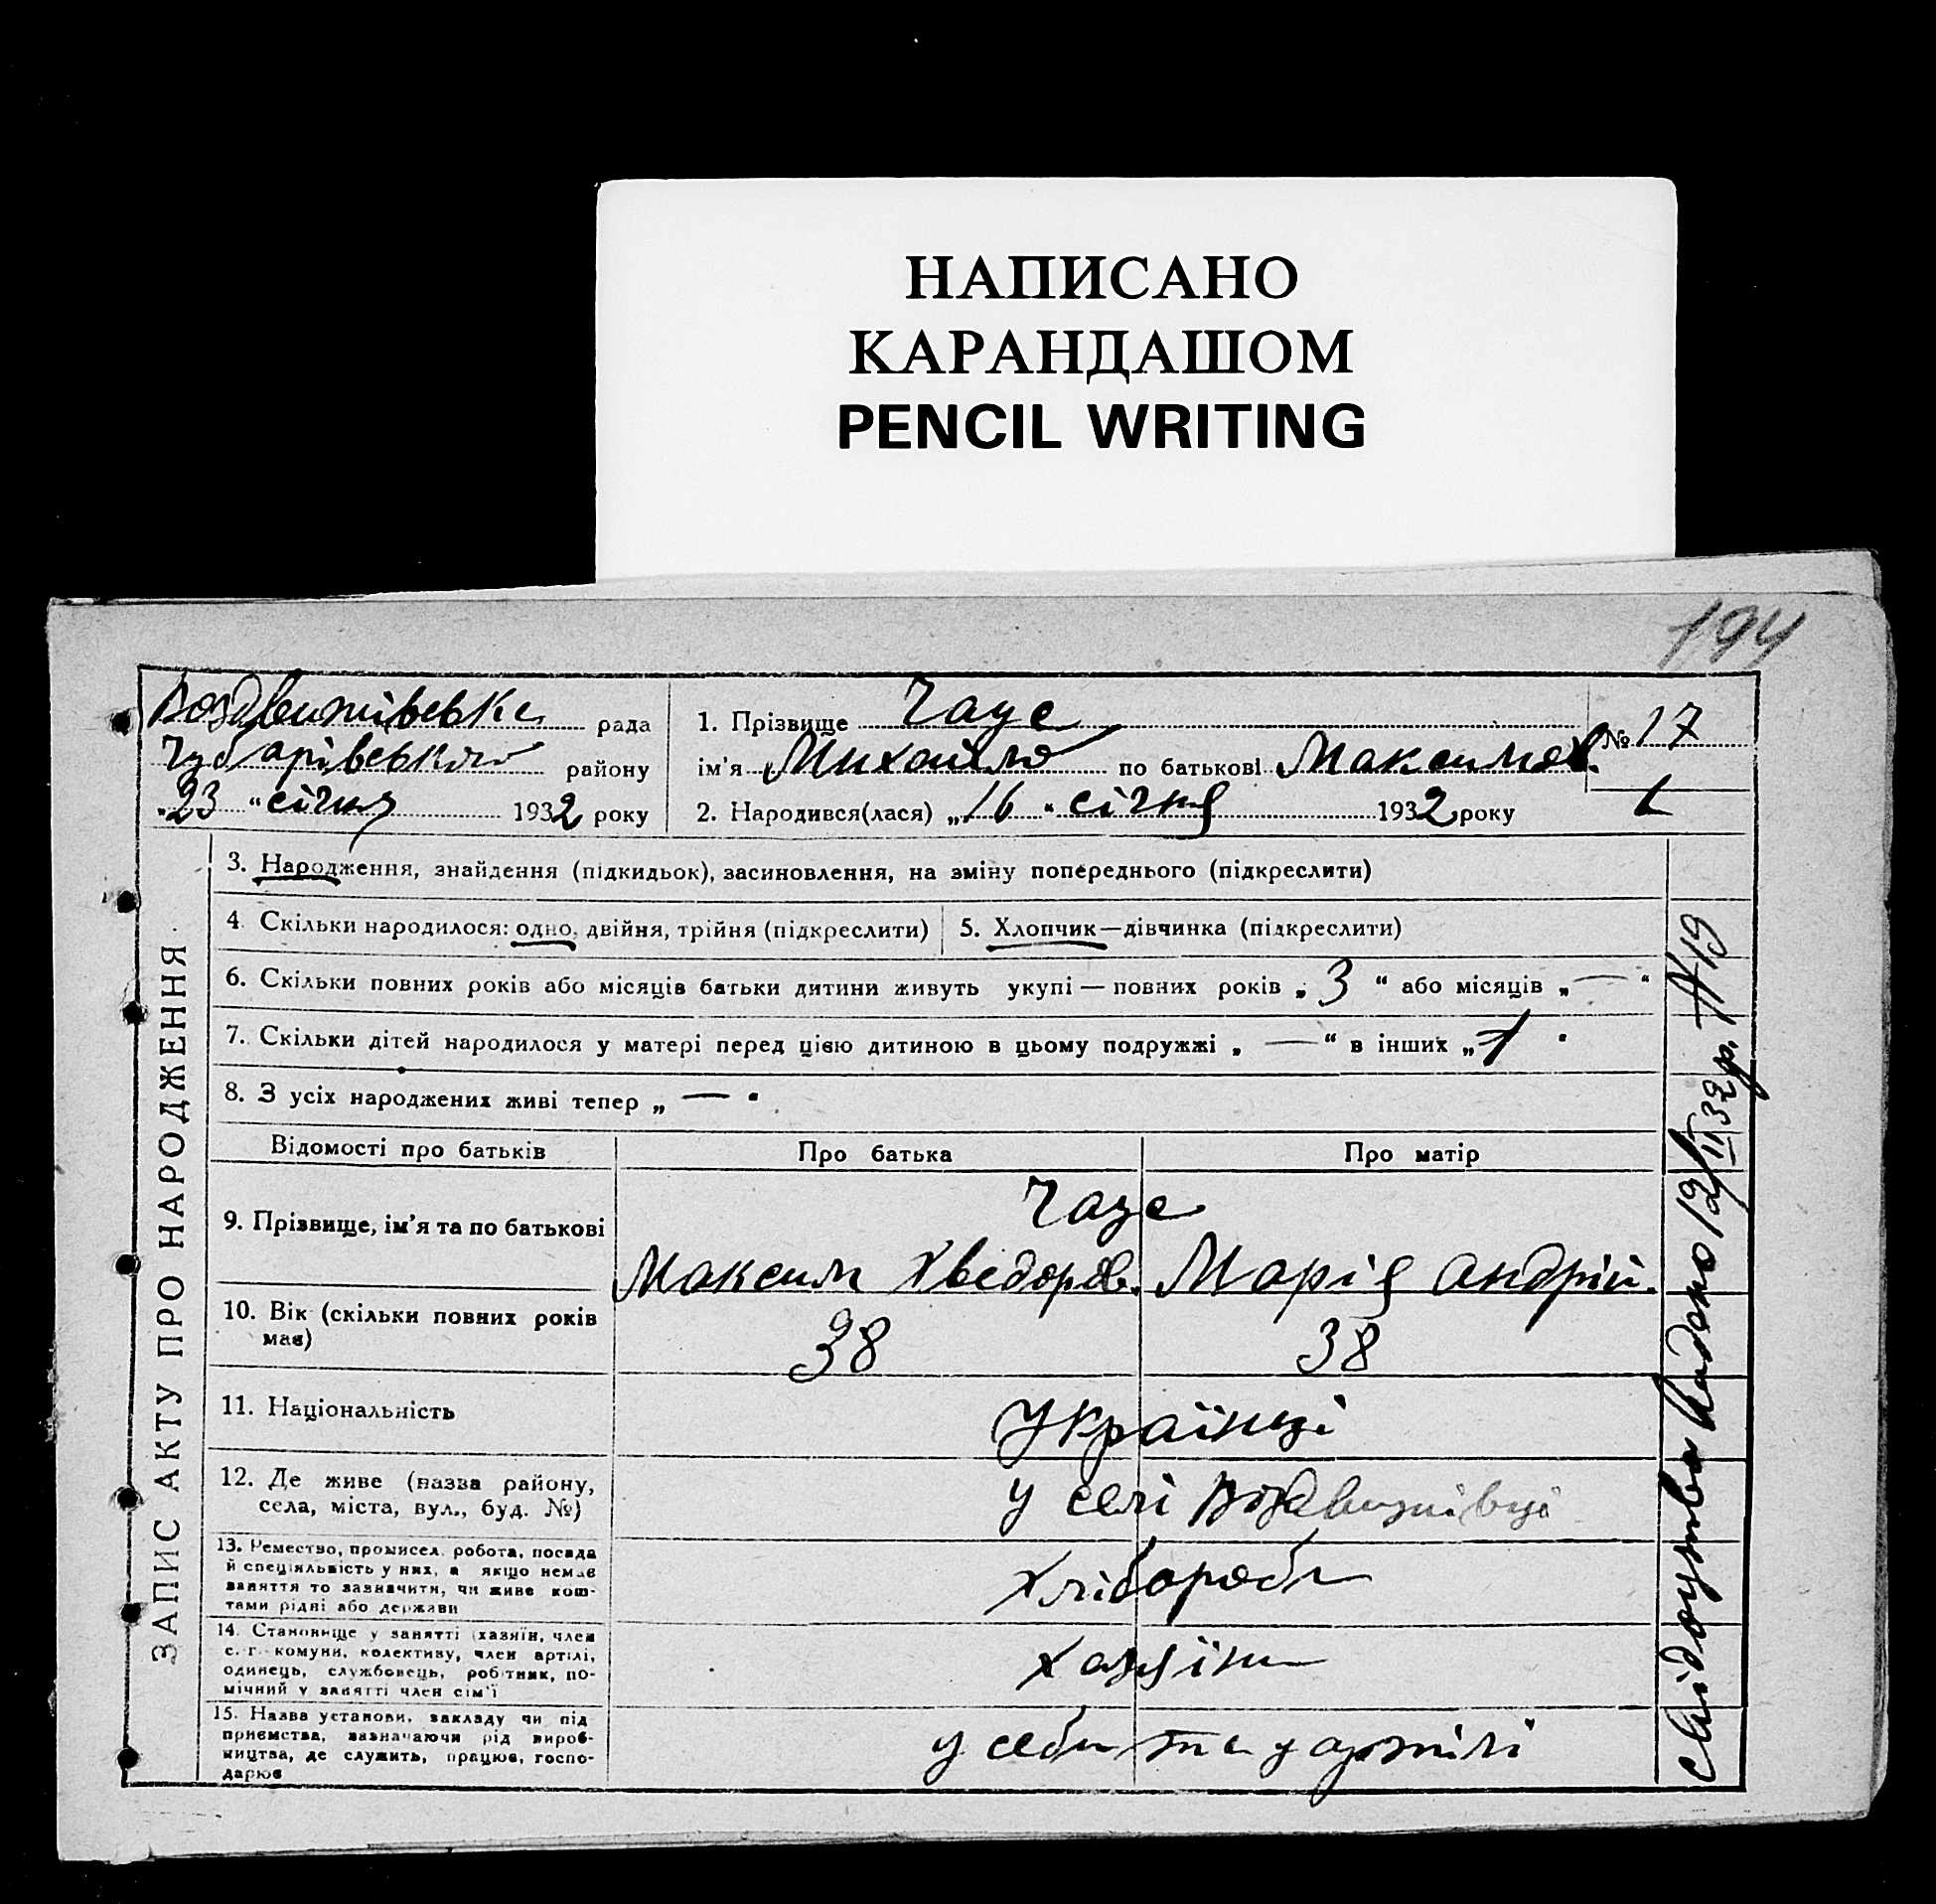 НАПИСАНО
КАРАНДАШОМ
PENCIL WRITING
194
Воздвижівська рада
Чубарівського району
„23“ січня 1932 року
1. Прізвище Чаус
ім’я Михайло по батькові Максимов.
2. Народився(лася) „16“ січня 1932 року
№ 17
ЗАПИС АКТУ ПРО НАРОДЖЕННЯ
3. Народження, знайдення (підкидьок), засиновлення, на зміну попереднього (підкреслити)
4. Скільки народилося: одно, двійня, трійня (підкреслити)
5. Хлопчик—дівчинка (підкреслити)
6. Скільки повних років або місяців батьки дитини живуть укупі — повних років „3“ або місяців „—“
7. Скільки дітей народилося у матері перед цією дитиною в цьому подружжі „—“ в інших „1“
8. З усіх народжених живі тепер „—“
Відомості про батьків Про батька Про матір
9. Прізвище, ім’я та по батькові
Чаус
Максим Хведоров. Марія Андрій.
10. Вік (скільки повних років
має)
38 38
11. Національність
Українці
12. Де живе (назва району,
села, міста, вул., буд. №)
у селі Воздвижівці
13. Ремество, промисел, робота, посада
й спеціяльність у них, а якщо немає
заняття то зазначити, чи живе кош-
тами рідні або держави
Хлібороби
14. Становище у занятті (хазяїн, член
с.-г. комуни, колективу, член артілі,
одинець, службовець, робітник, по-
мічний у занятті член сім’ї
хазяїни
15. Назва установи, закладу чи під
приємства, зазначаючи рід вироб-
ництва, де служить, працює, госпо-
дарює
у себи та у артілі
видано 12/II 32 р. №19